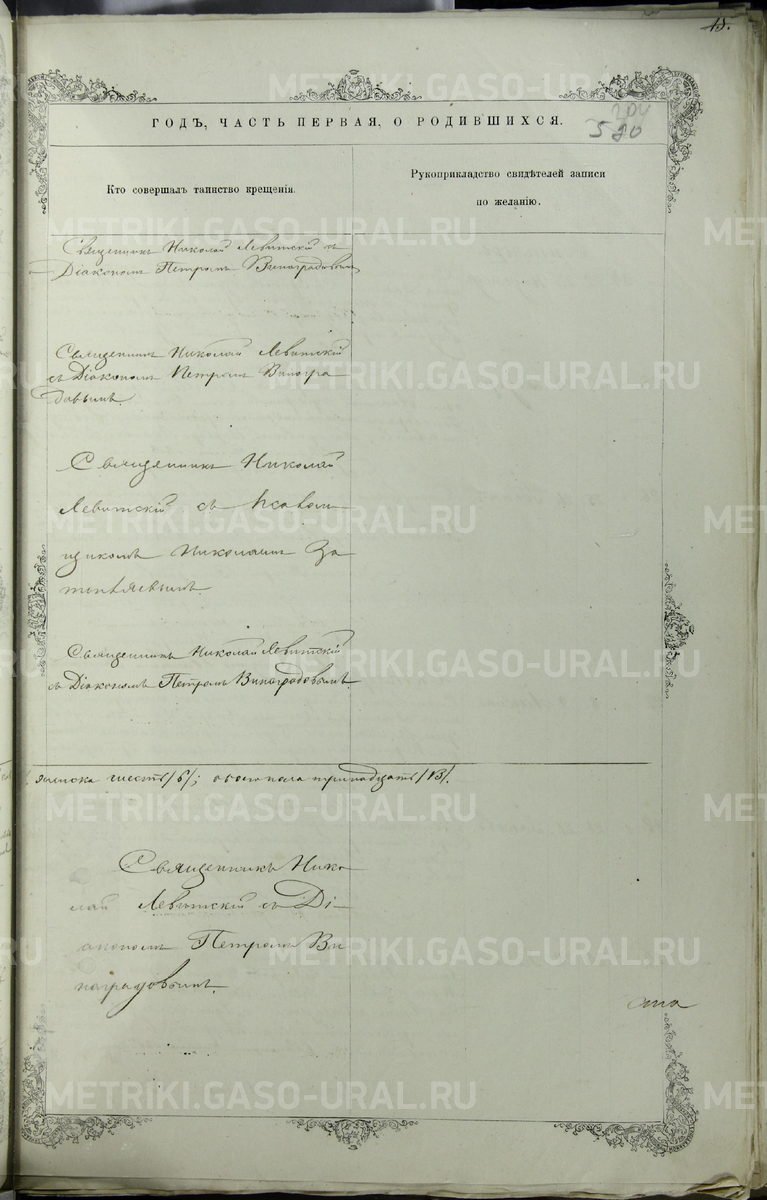 15.
ГОДЪ, ЧАСТЬ ПЕРВАЯ, О РОДИВШИХСЯ.
520
Кто совершалъ таинство крещенія.
Рукоприкладство свидѣтелей записи
по желанію.
Священникъ Николай Левитскій съ
Діакономъ Петромъ Виноградовымъ
Священникъ Николай Левитскій
съ Діакономъ Петромъ Виногра
довымъ.
Священникъ Николай
Левитскій съ Псалом
щикомъ Николаемъ
Священникъ Николай Левитскій
съ Діакономъ Петромъ Виноградовымъ.
женска шесть /6/; обоего пола тринадцать /13/.
Священникъ Нико
лай Левитскій съ Ді-
акономъ Петромъ Ви
наградовымъ.
METRIKI.GASO-URAL.RU